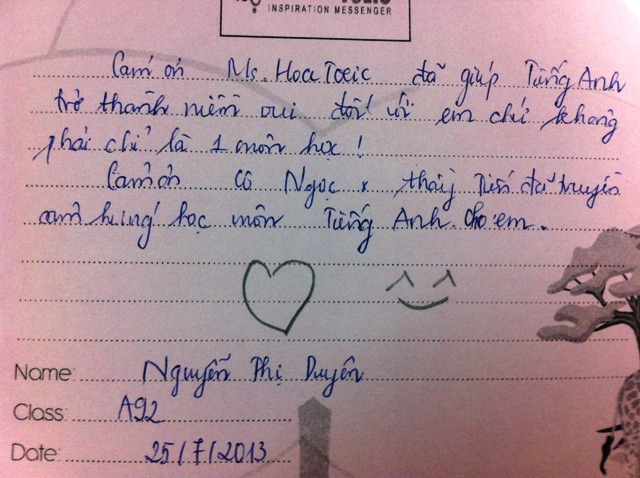 INSPIRATION MESSENGER
Cảm ơn Ms. Hoa Toeic đã giúp Tiếng Anh
trở thành niềm vui đối với em chứ không
phải chỉ là 1 môn học !
Cảm ơn cô Ngọc, thầy Tiến đã truyền
cảm hứng học môn Tiếng Anh cho em.
Name: Nguyễn Thị Duyên
Class: A92
Date: 25/7/2013